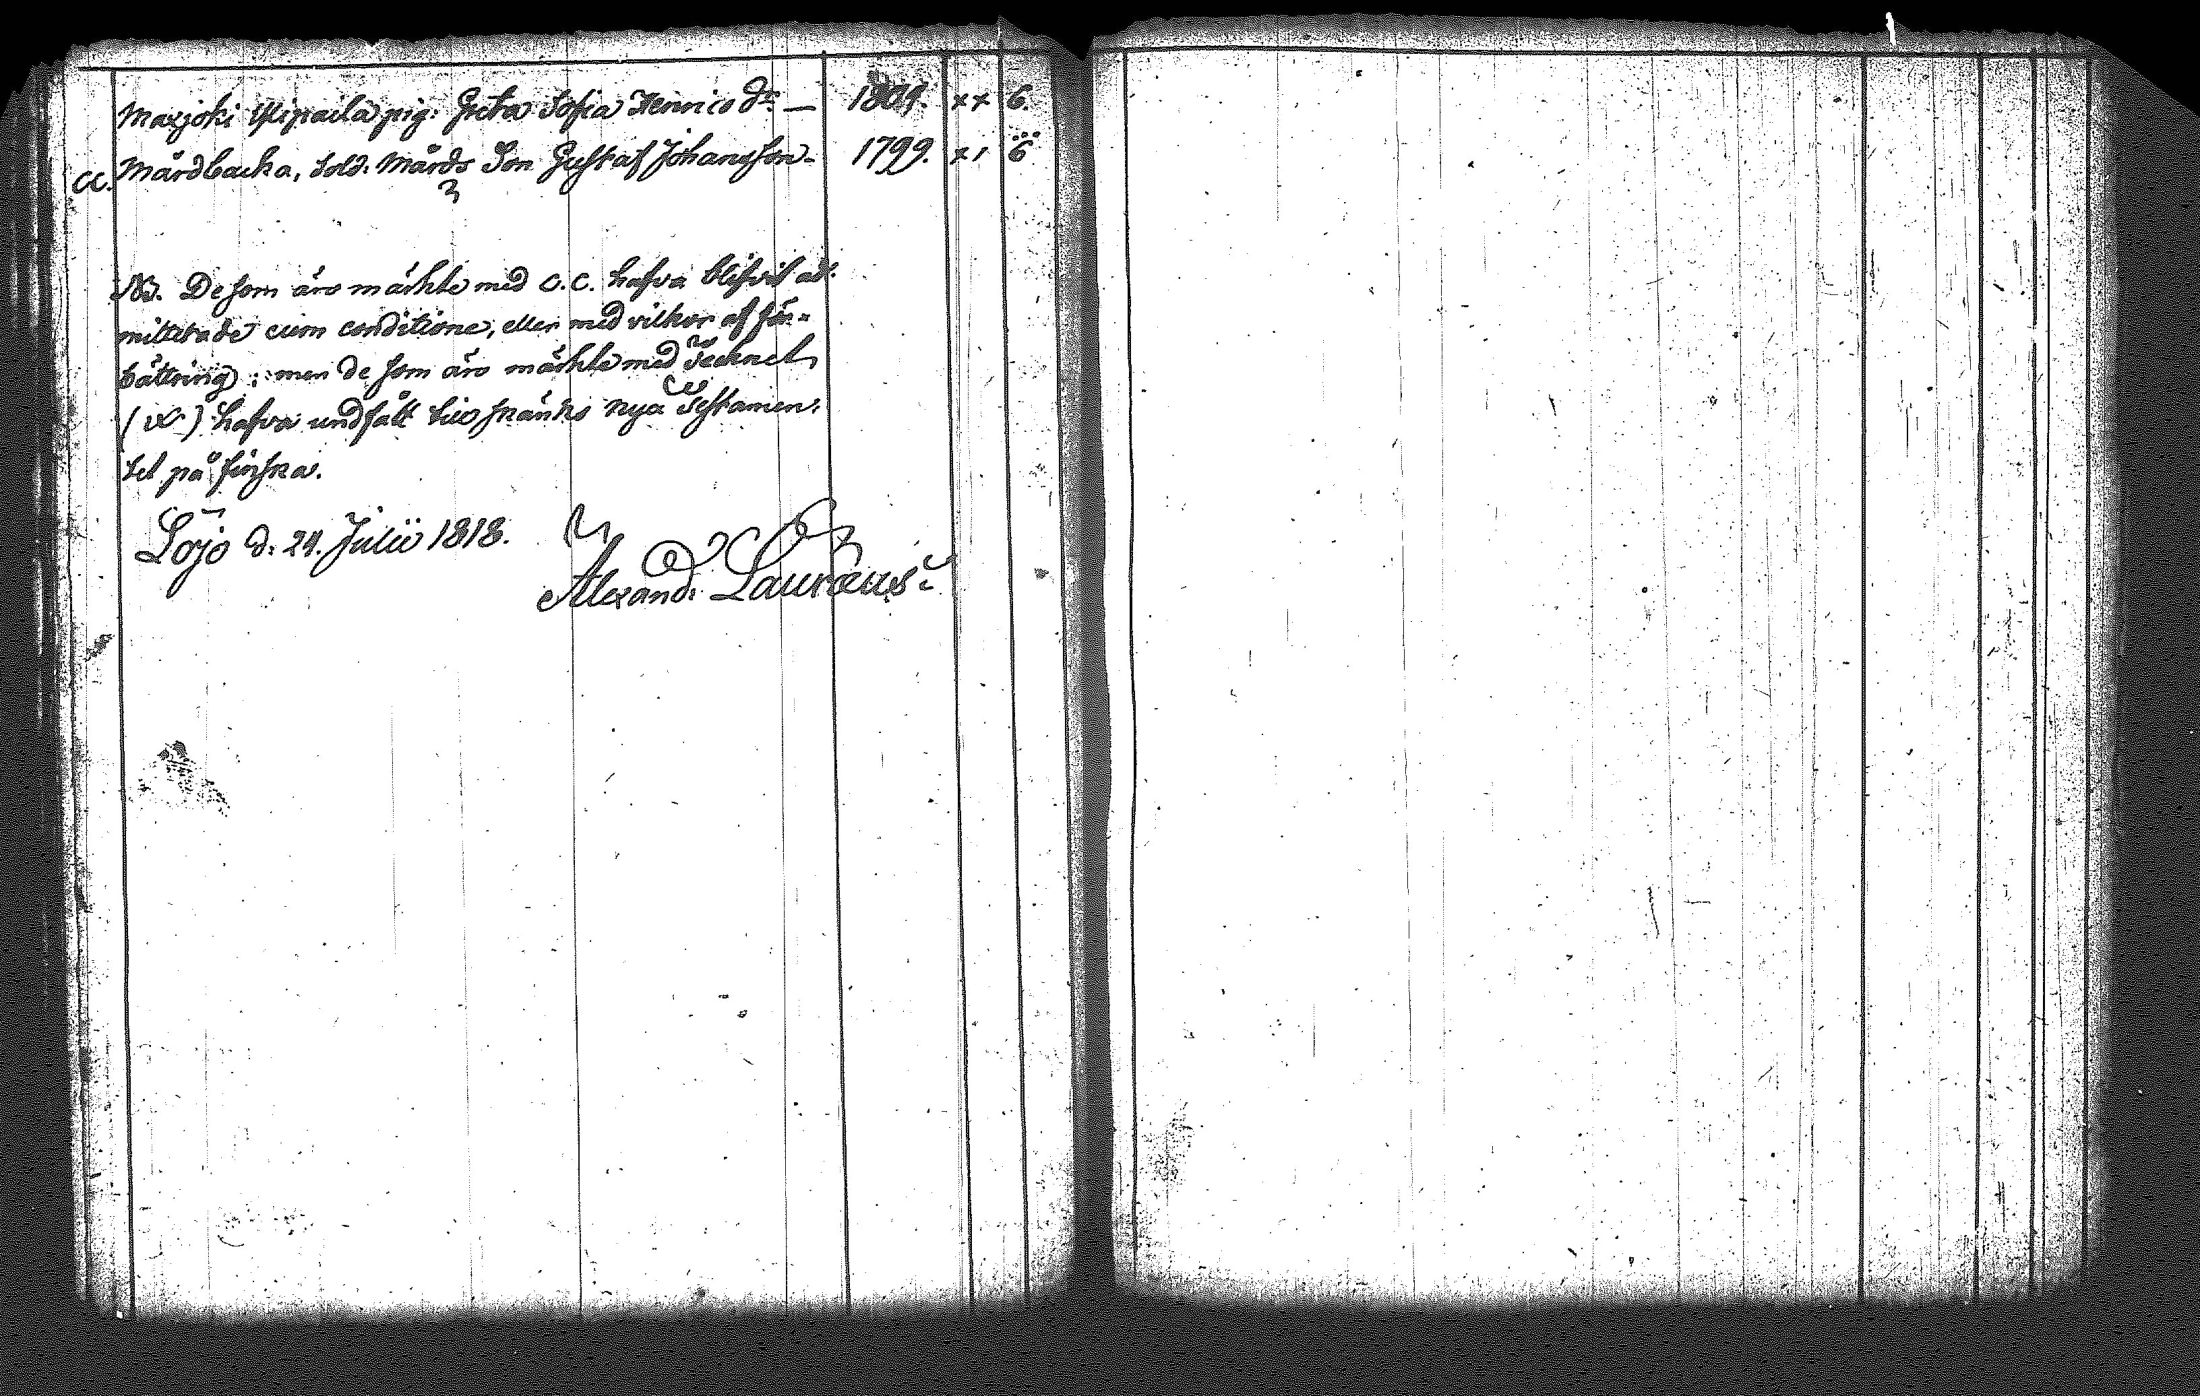 Maxjoki Ylipaila pig. Greta Sofia Henrics dr. — 1801. xx 6
cc. Mårdbacka, Sold. Mårds Son Gustaf Johansson - 1799. x1 6
NB. De som äro märkte med c.c. hafva blifvit ad-
mitterade cum conditione, eller med vilkor af för-
bättring; men de som äro märkte med Tecknet
( ) hafva undfått till skänks nya Testamen-
tet på finska.
Lojo d. 24. Julii 1818.
Alexand: Lauræus